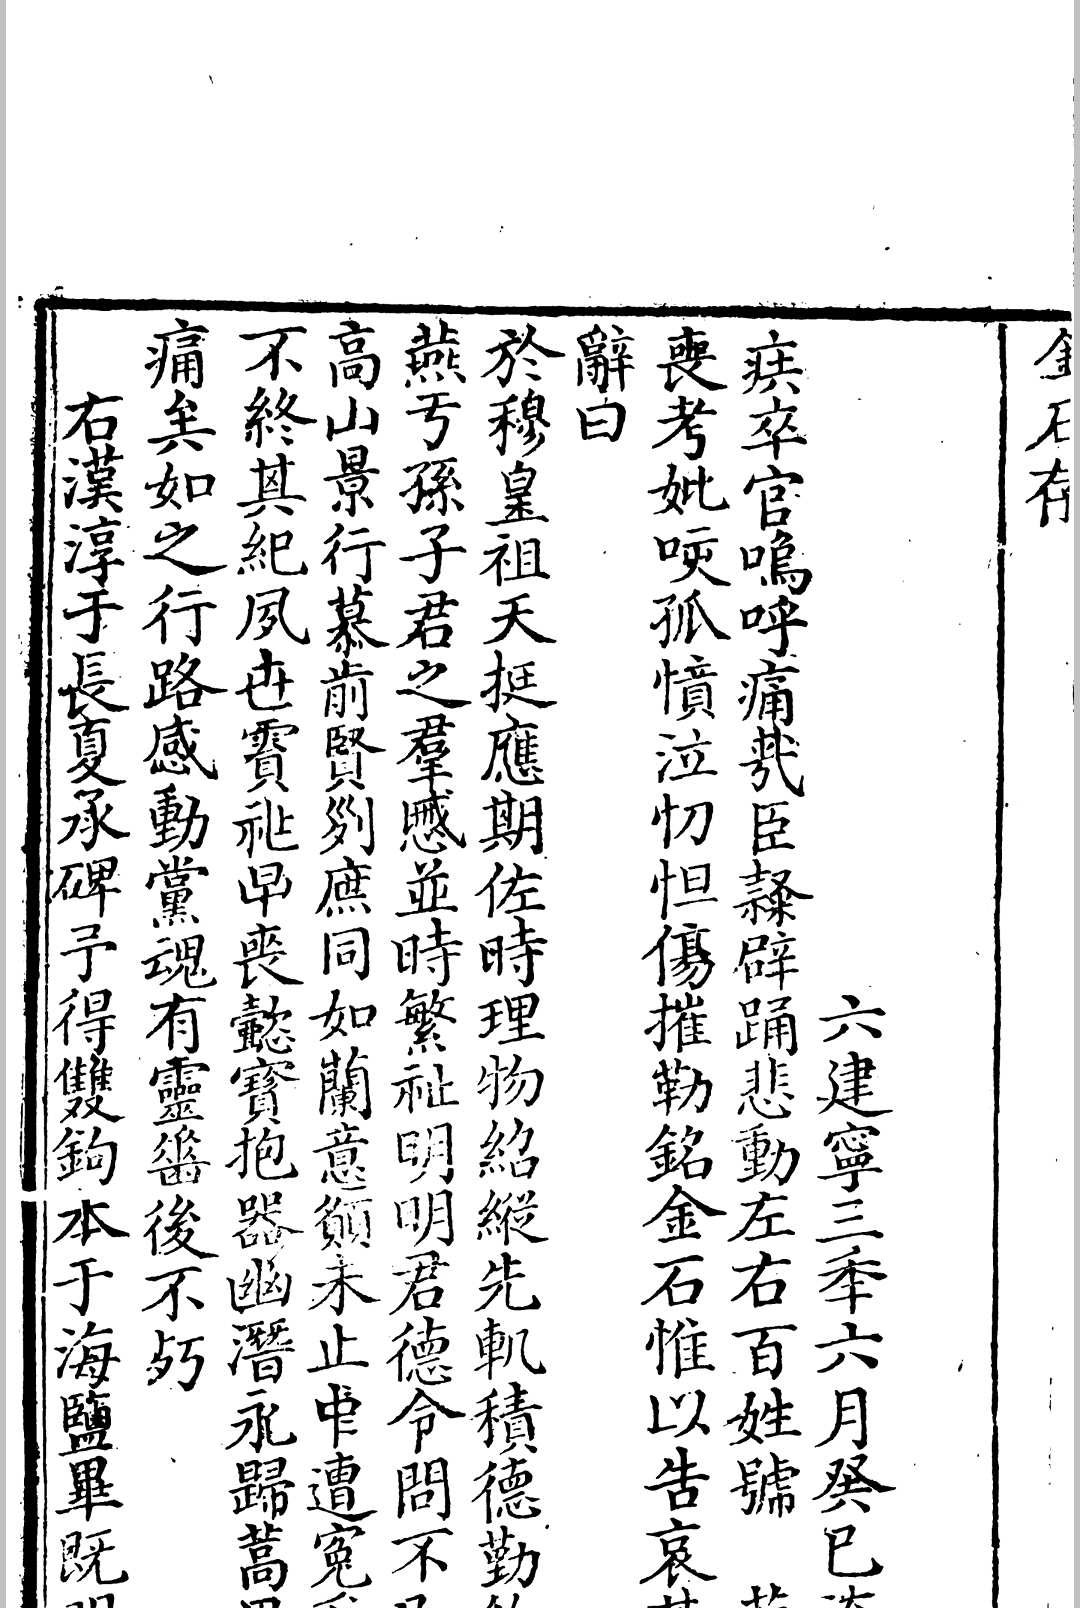 金石存
六建寧三秊六月癸巳
疾卒官嗚呼痛㦲臣隸辟踊悲動左右百姓號
喪考妣咴孤憤泣忉怛傷摧勒銘金石惟以告哀
辭曰
於穆皇祖天挺應期佐時理物紹縱先軌積德勤
燕亏孫子君之羣慼並時繁祉明明君德令問不
高山景行慕前賢𠛱庶同如蘭意願未止中遭冤
不終其紀夙世賣祉早喪懿寶抱器幽潛永歸蒿
痛矣如之行路感動黨魂有靈𡸁後不𣧑
右漢淳于長夏承碑予得雙鉤本于海鹽畢既明